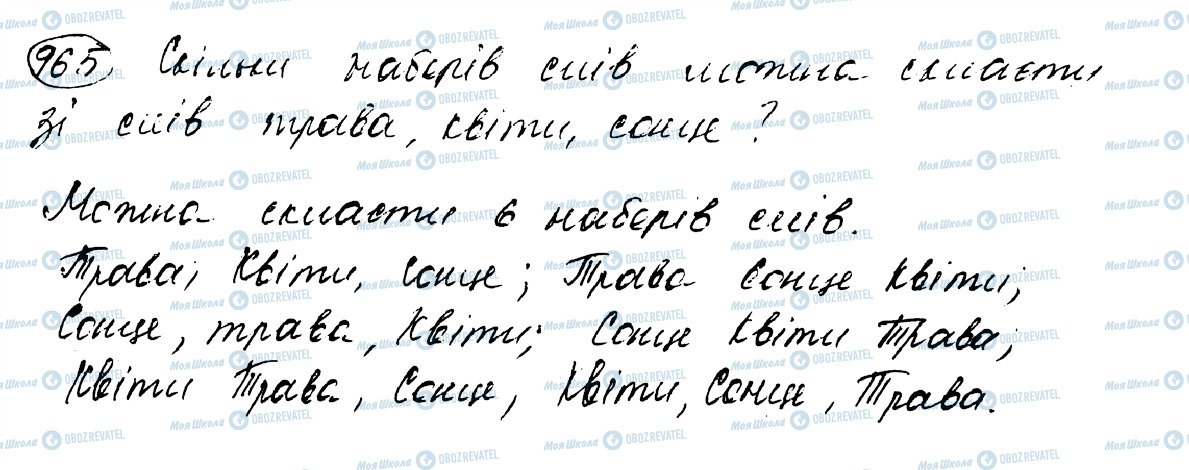 965. Скільки наборів слів можна скласти
зі слів трава, квіти, сонце?
Можна скласти 6 наборів слів.
Трава, Квіти, Сонце; Трава Сонце Квіти;
Сонце, трава, Квіти; Сонце Квіти Трава;
Квіти Трава, Сонце, Квіти, Сонце, Трава.
Моя Школа OBOZREVATEL